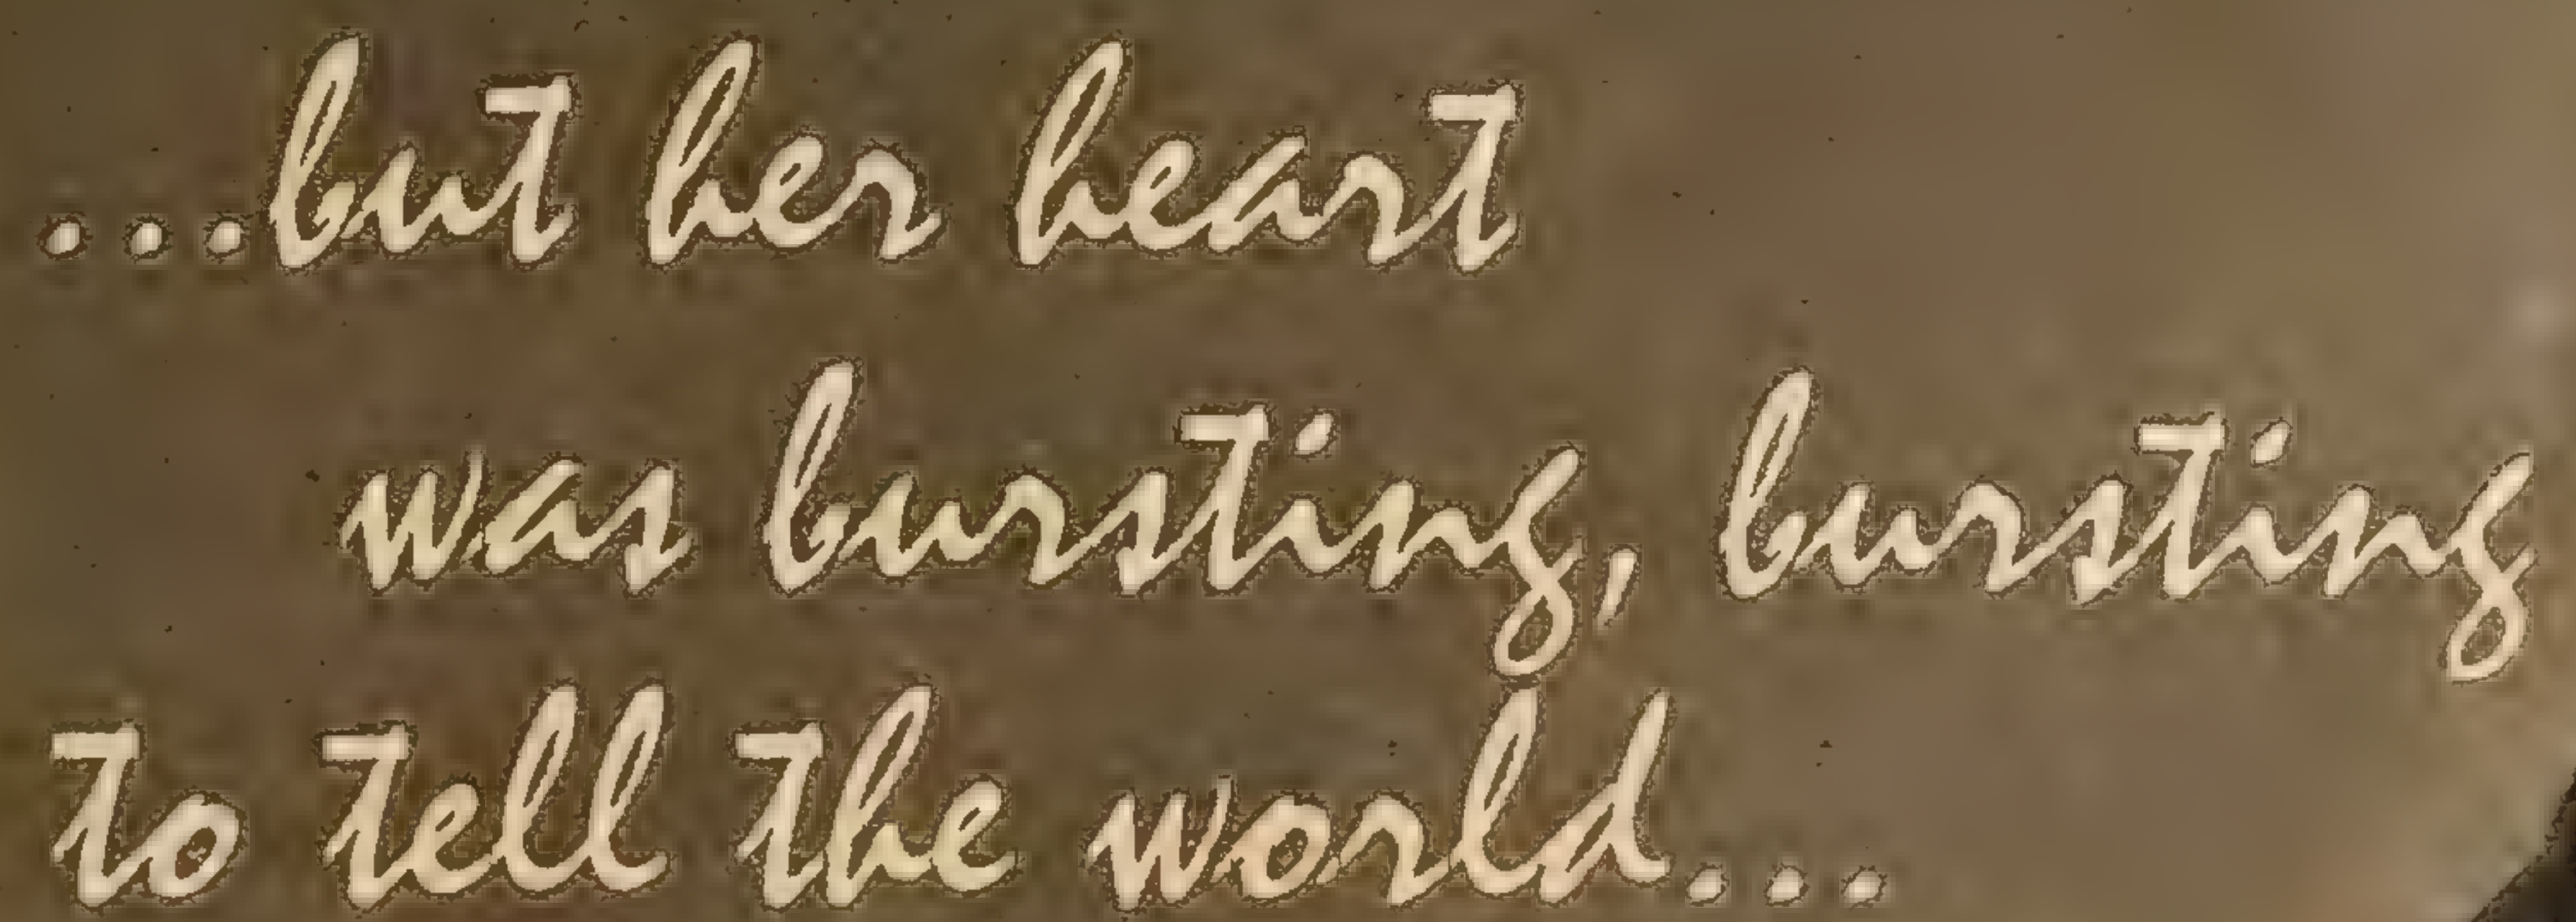 ...but her heart
was bursting, bursting
to tell the world...